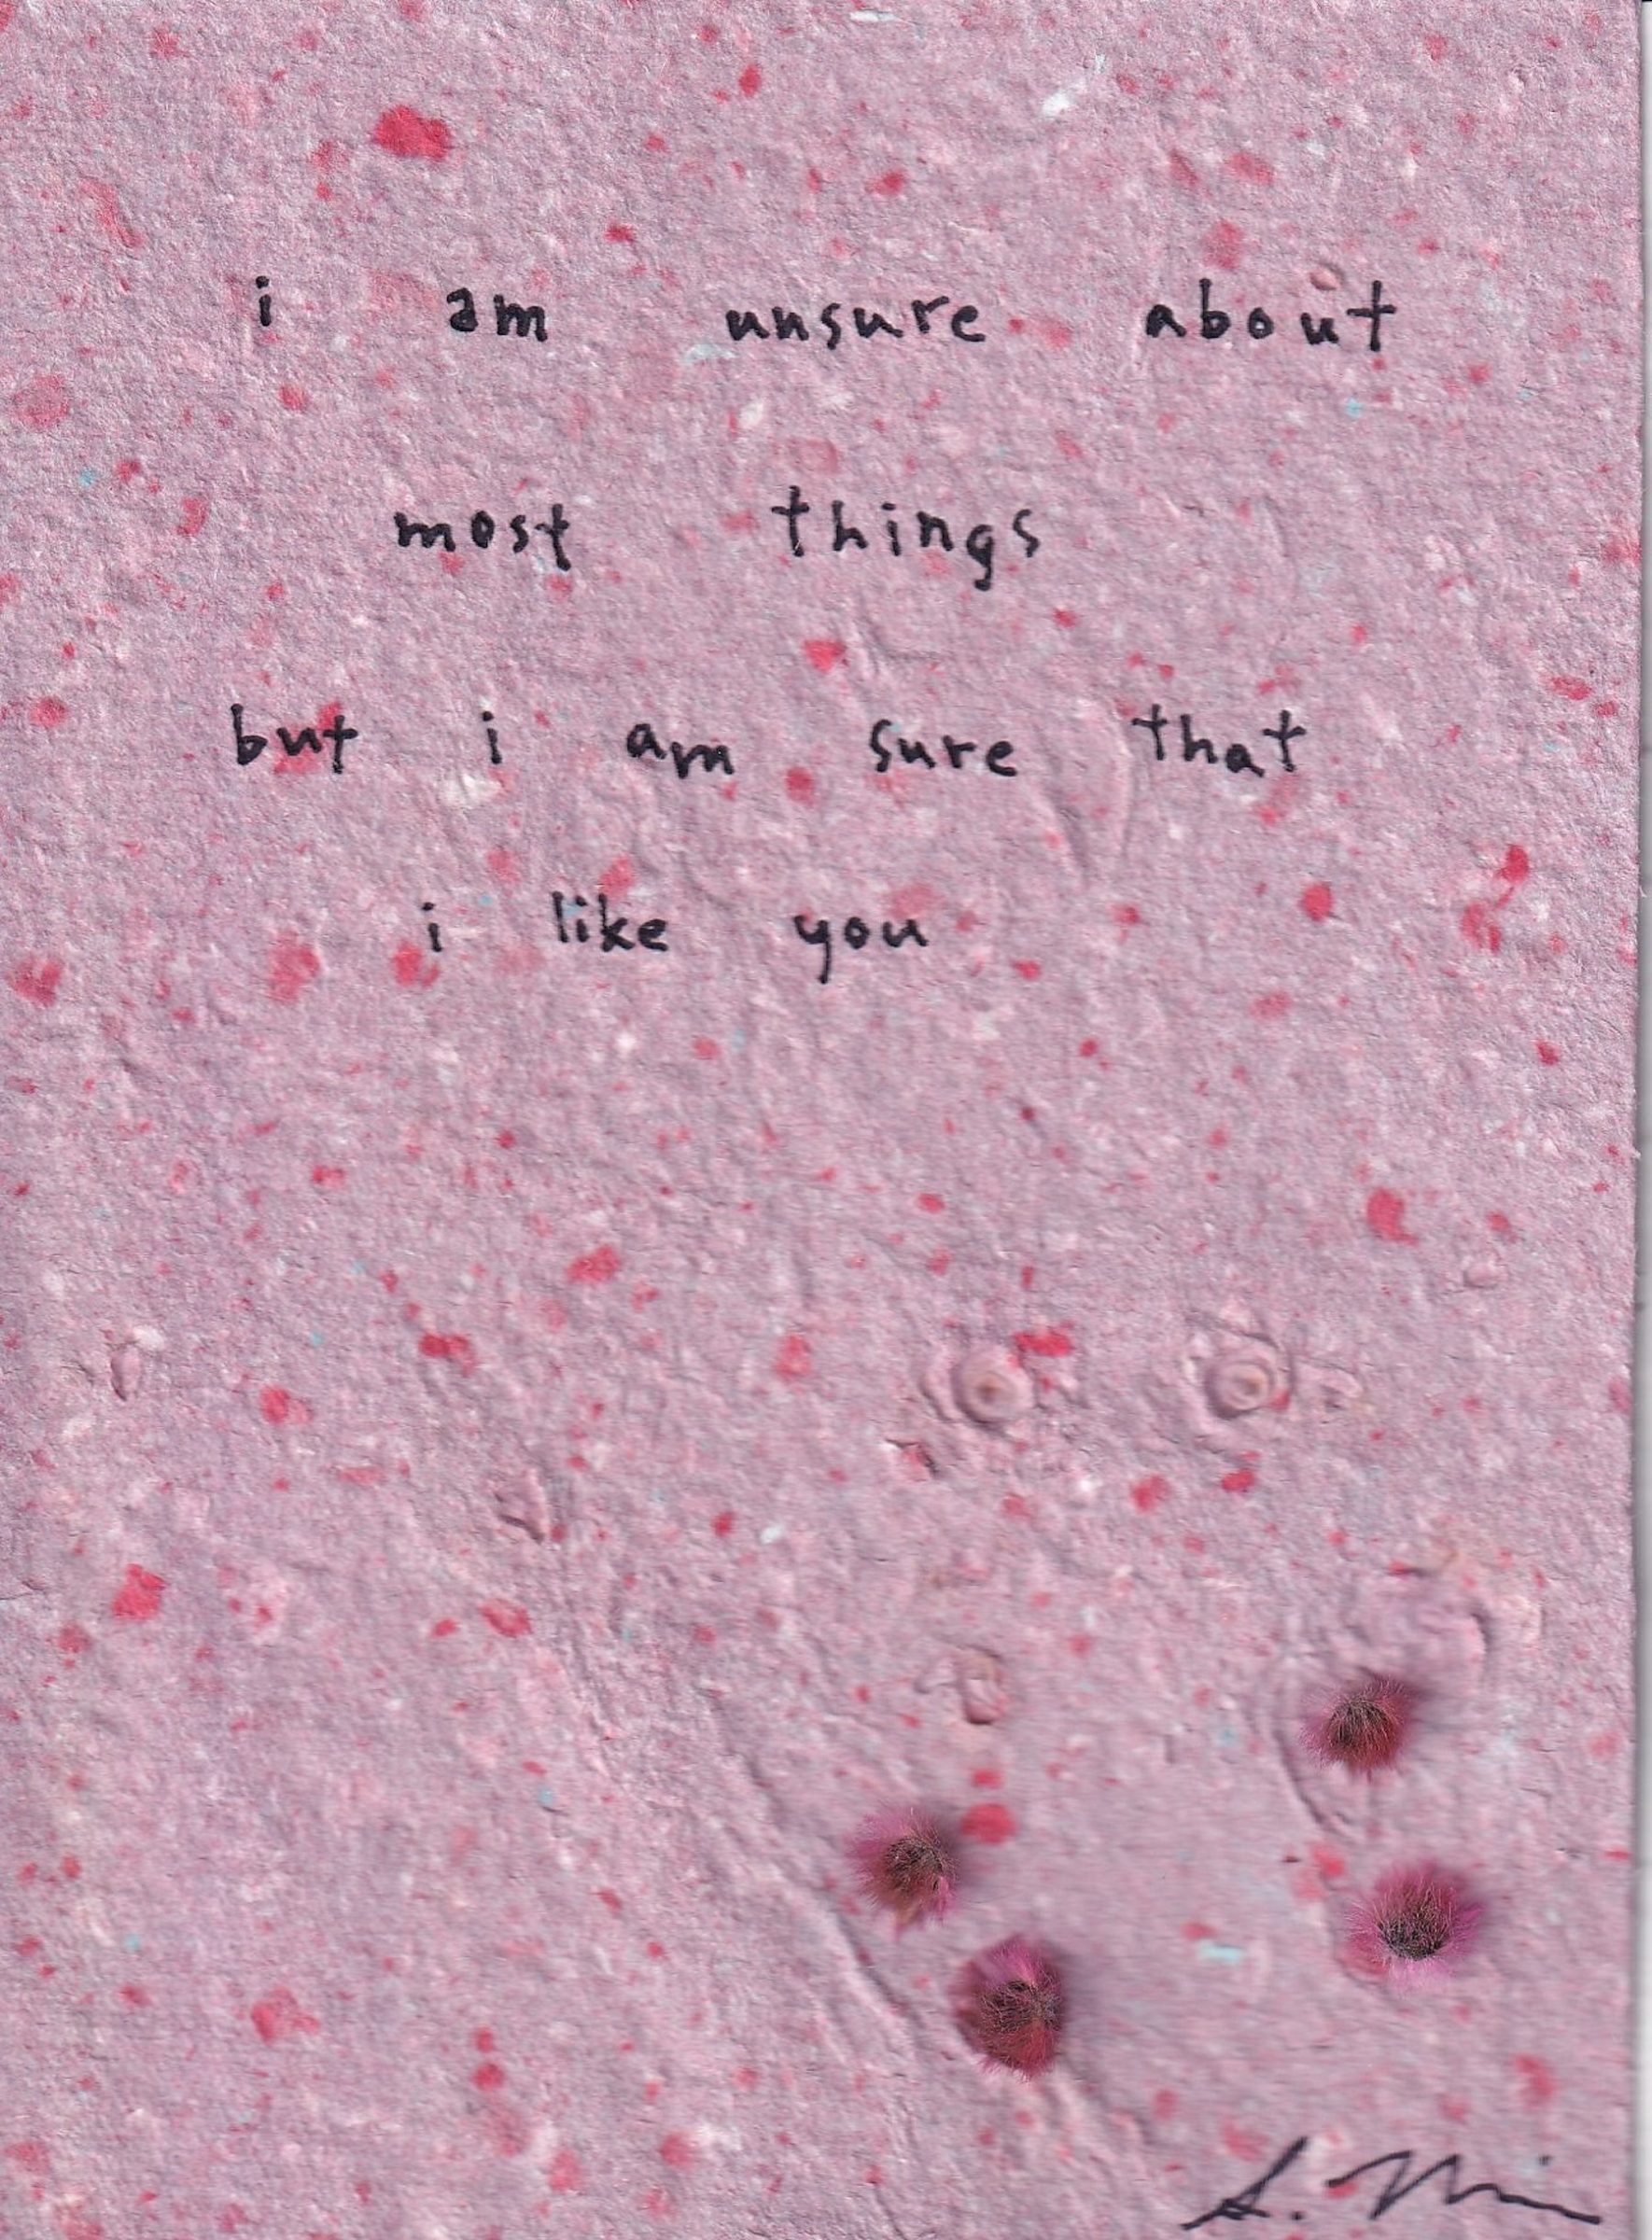 i am unsure about
most things
but i am sure that
i like you